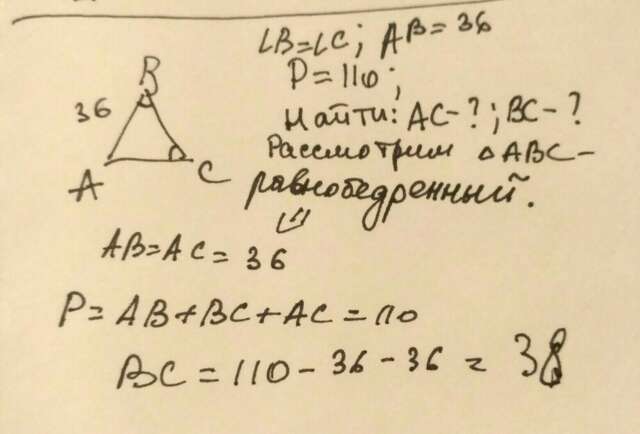 ∠B=∠C; AB=36
P=110;
Найти: AC-?; BC-?
Рассмотрим △ABC-
равнобедренный.
B
36
A
C
AB=AC=36
P=AB+BC+AC=110
BC=110-36-36=38